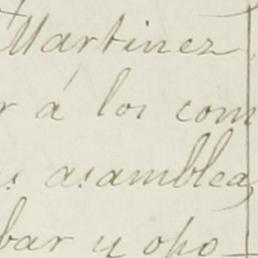 Martinez
r á los com
s asamblea
bar y opo